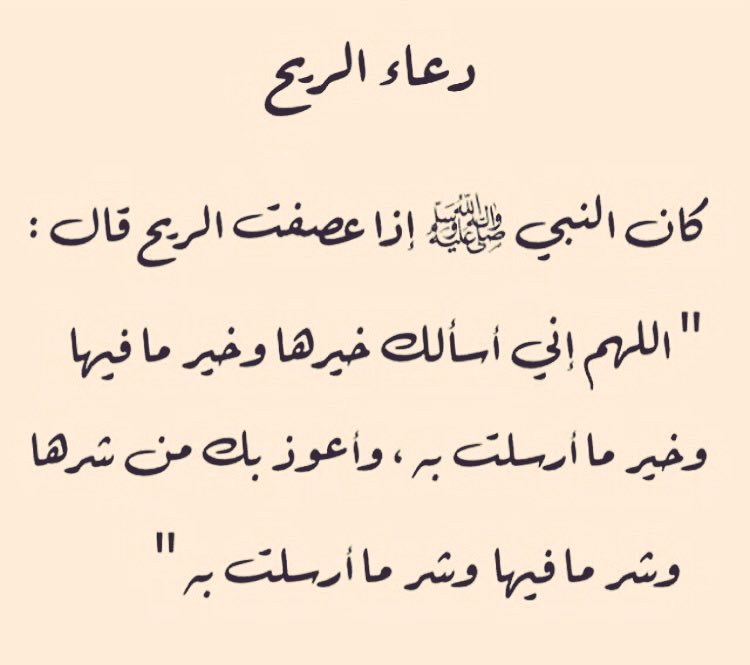 دعاء الريح
كان النبي ﷺ إذا عصفت الريح قال :
"اللهم إني أسألك خيرها وخير ما فيها
وخير ما أرسلت به ، وأعوذ بك من شرها
وشر ما فيها وشر ما أرسلت به "